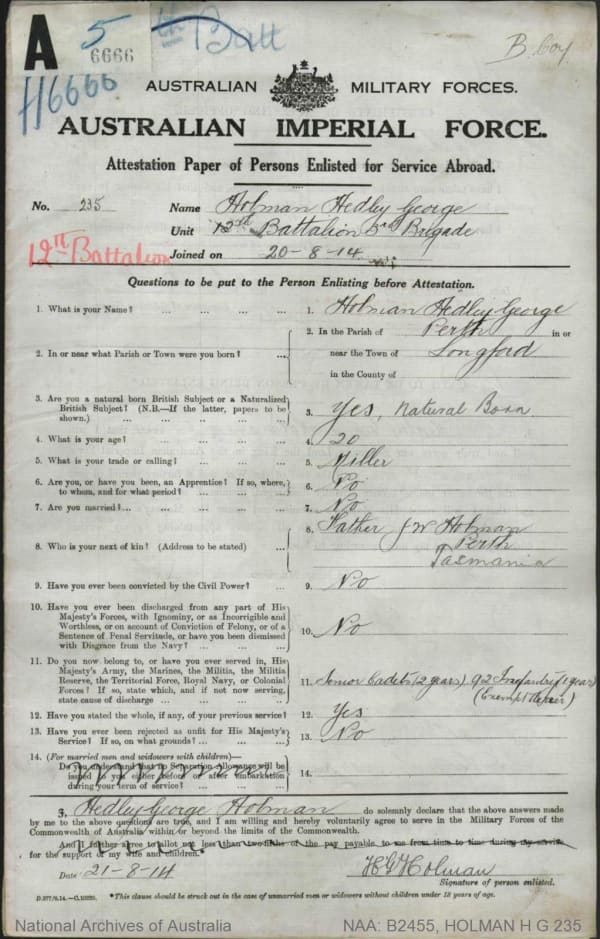 A 5 6666
Batt
H6666
AUSTRALIAN MILITARY FORCES.
AUSTRALIAN IMPERIAL FORCE.
Attestation Paper of Persons Enlisted for Service Abroad.
No. 235 Name Holman Hedley George
Unit Battalion 3rd Brigade
12th Battalion Joined on 20-8-14
Questions to be put to the Person Enlisting before Attestation.
1. What is your Name? ... ... ... ... 1. Holman Hedley George
2. In or near what Parish or Town were you born? ... 2. In the Parish of Perth in or
near the Town of Longford
in the County of
3. Are you a natural born British Subject or a Naturalized
British Subject? (N.B.—If the latter, papers to be
shown.) ... ... ... ... 3. Yes, Natural Born
4. What is your age? ... ... ... ... 4. 20
5. What is your trade or calling? ... ... ... 5. Miller
6. Are you, or have you been, an Apprentice? If so, where,
to whom, and for what period? ... ... ... 6. No
7. Are you married? ... ... ... ... 7. No
8. Who is your next of kin? (Address to be stated) ... 8. Father J W Holman
Perth
Tasmania
9. Have you ever been convicted by the Civil Power? ... 9. No
10. Have you ever been discharged from any part of His
Majesty's Forces, with Ignominy, or as Incorrigible and
Worthless, or on account of Conviction of Felony, or of a
Sentence of Penal Servitude, or have you been dismissed
with Disgrace from the Navy? ... ... 10. No
11. Do you now belong to, or have you ever served in, His
Majesty's Army, the Marines, the Militia, the Militia
Reserve, the Territorial Force, Royal Navy, or Colonial
Forces? If so, state which, and if not now serving,
state cause of discharge ... ... ... 11. Senior Cadets (2 years) 92 Infantry (1 year)
12. Have you stated the whole, if any, of your previous service? 12. Yes
13. Have you ever been rejected as unfit for His Majesty's
Service? If so, on what grounds? ... ... ... 13. No
14. (For married men and widowers with children)—
Do you understand that no Separation Allowance will be
issued to you either before or after embarkation
during your term of service? ... ... 14.
I, Hedley George Holman do solemnly declare that the above answers made
by me to the above questions are true, and I am willing and hereby voluntarily agree to serve in the Military Forces of the
Commonwealth of Australia within or beyond the limits of the Commonwealth.
And I further agree to allot not less than two-fifths of the pay payable to me from time to time during my service
for the support of my wife and children.
Date: 21-8-14 H G Holman
Signature of person enlisted.
*This clause should be struck out in the case of unmarried men or widowers without children under 18 years of age.
National Archives of Australia NAA: B2455, HOLMAN H G 235